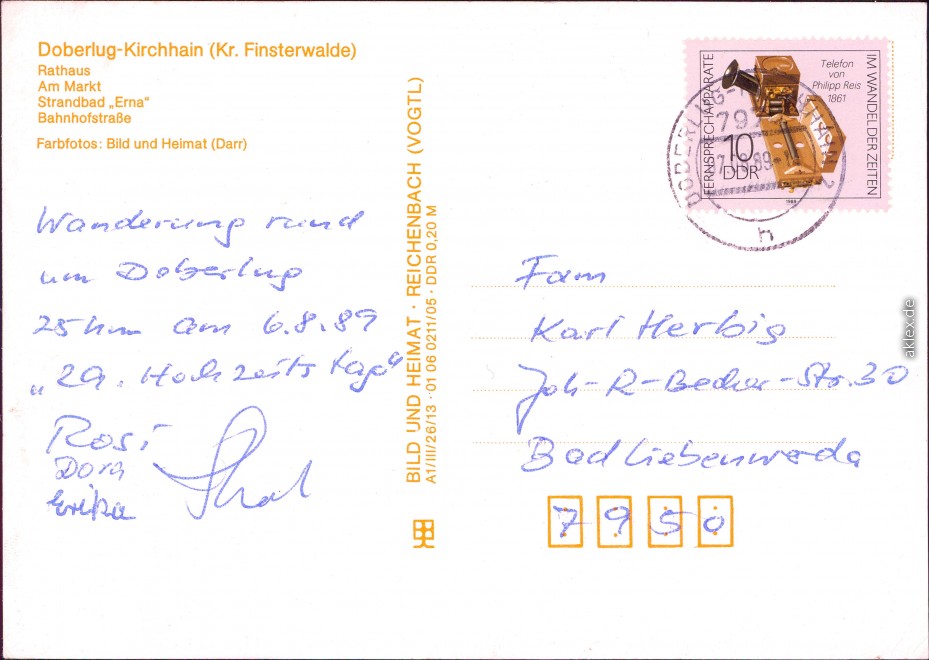 Doberlug-Kirchhain (Kr. Finsterwalde)
Rathaus
Am Markt
Strandbad „Erna"
Bahnhofstraße
Farbfotos: Bild und Heimat (Darr)
Wanderung rund
um Doberlug
25km am 6.8.89
„29. Hochzeitstag"
Rosi
Dora
Erika
BILD UND HEIMAT · REICHENBACH (VOGTL)
A1/III/26/13 · 01 06 0211/05 · DDR 0,20 M
FERNSPRECHAPPARATE
IM WANDEL DER ZEITEN
Telefon
von
Philipp Reis
1861
10
DDR
1989
DOBERLUG-KIRCHHAIN 2
h
Fam
Karl Herbig
Joh-R-Becher-Str. 30
Bad Liebenwerda
7950
aklex.de